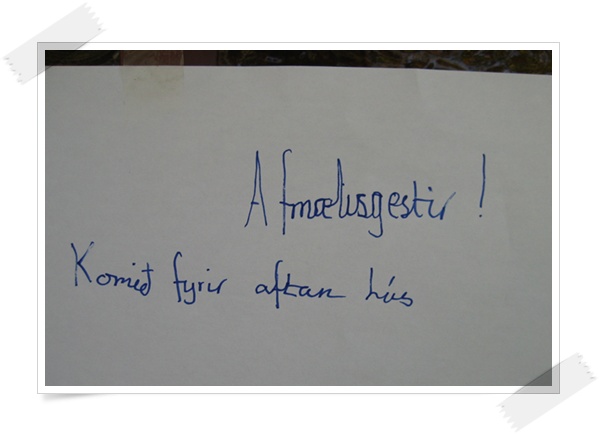 Afmælisgestir!
Komið fyrir aftan hús